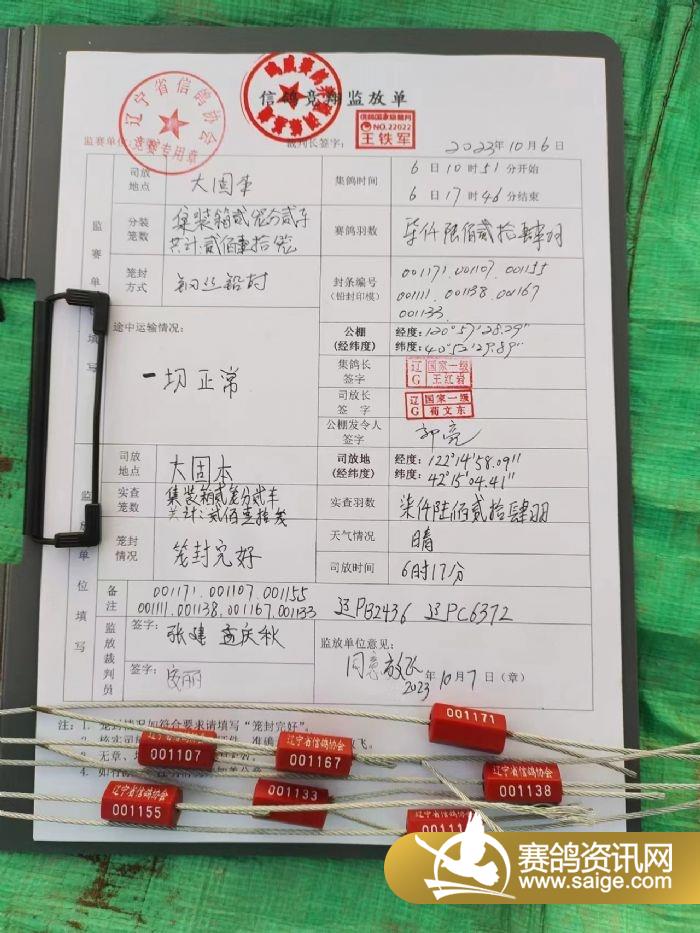 信鸽竞翔监放单
辽宁省信鸽协会
竞赛专用章
信鸽国家级裁判
NO.22022
王铁军
监赛单位: 裁判长签字: 2023年10月6日
监赛单位填写
司放地点 大固本
集鸽时间 6日10时51分开始
6日17时46分结束
分装笼数 集装箱贰笼分贰车
共计贰佰壹拾笼
赛鸽羽数 柒仟陆佰贰拾肆羽
笼封方式 钢丝铅封
封条编号(铅封印模) 001171.001107.001155
001111.001138.001167
001133.
途中运输情况:
一切正常
公棚(经纬度) 经度:120°57'28.29"
纬度:40°52'29.89"
集鸽长签字 辽G 国家一级 王红岩
司放长签字 辽G 国家一级 荀文东
公棚发令人签字 郭亮
监放单位填写
司放地点 大固本
司放地(经纬度) 经度:122°14'58.09"
纬度:42°15'04.41"
实查笼数 集装箱贰笼分贰车
共计:贰佰壹拾笼
实查羽数 柒仟陆佰贰拾肆羽
笼封情况 笼封完好
天气情况 晴
司放时间 6时17分
备注 001171.001107.001155
001111.001138.001167.001133 辽PB2436 辽PC6372
监放裁判员
签字: 张建 孟庆秋
签字:
监放单位意见:
同意放飞
2023年10月7日(章)
注: 1. 笼封情况如符合要求请填写“笼封完好”。
001171
辽宁省信鸽协会
001107
辽宁省信鸽协会
001167
辽宁省信鸽协会
001138
辽宁省信鸽协会
001155
001133
赛鸽资讯网
www.saige.com